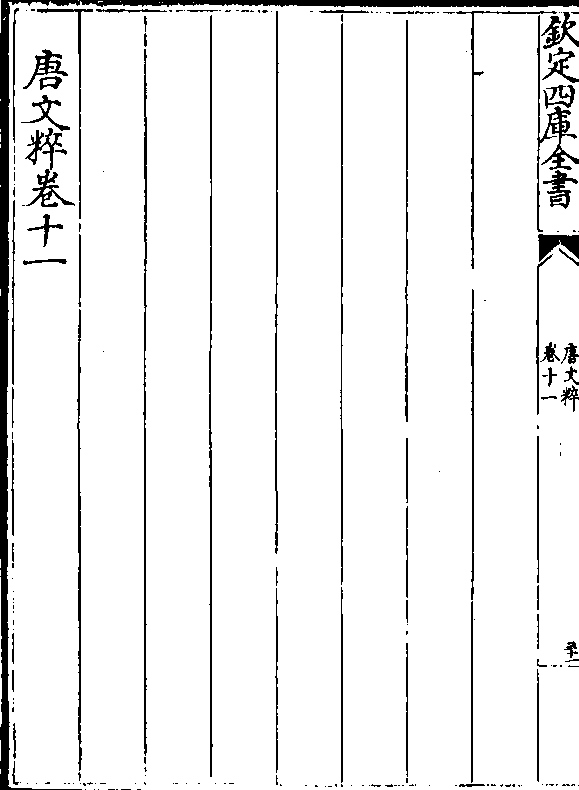 欽定四庫全書
唐文粹
卷十一
唐文粹卷十一